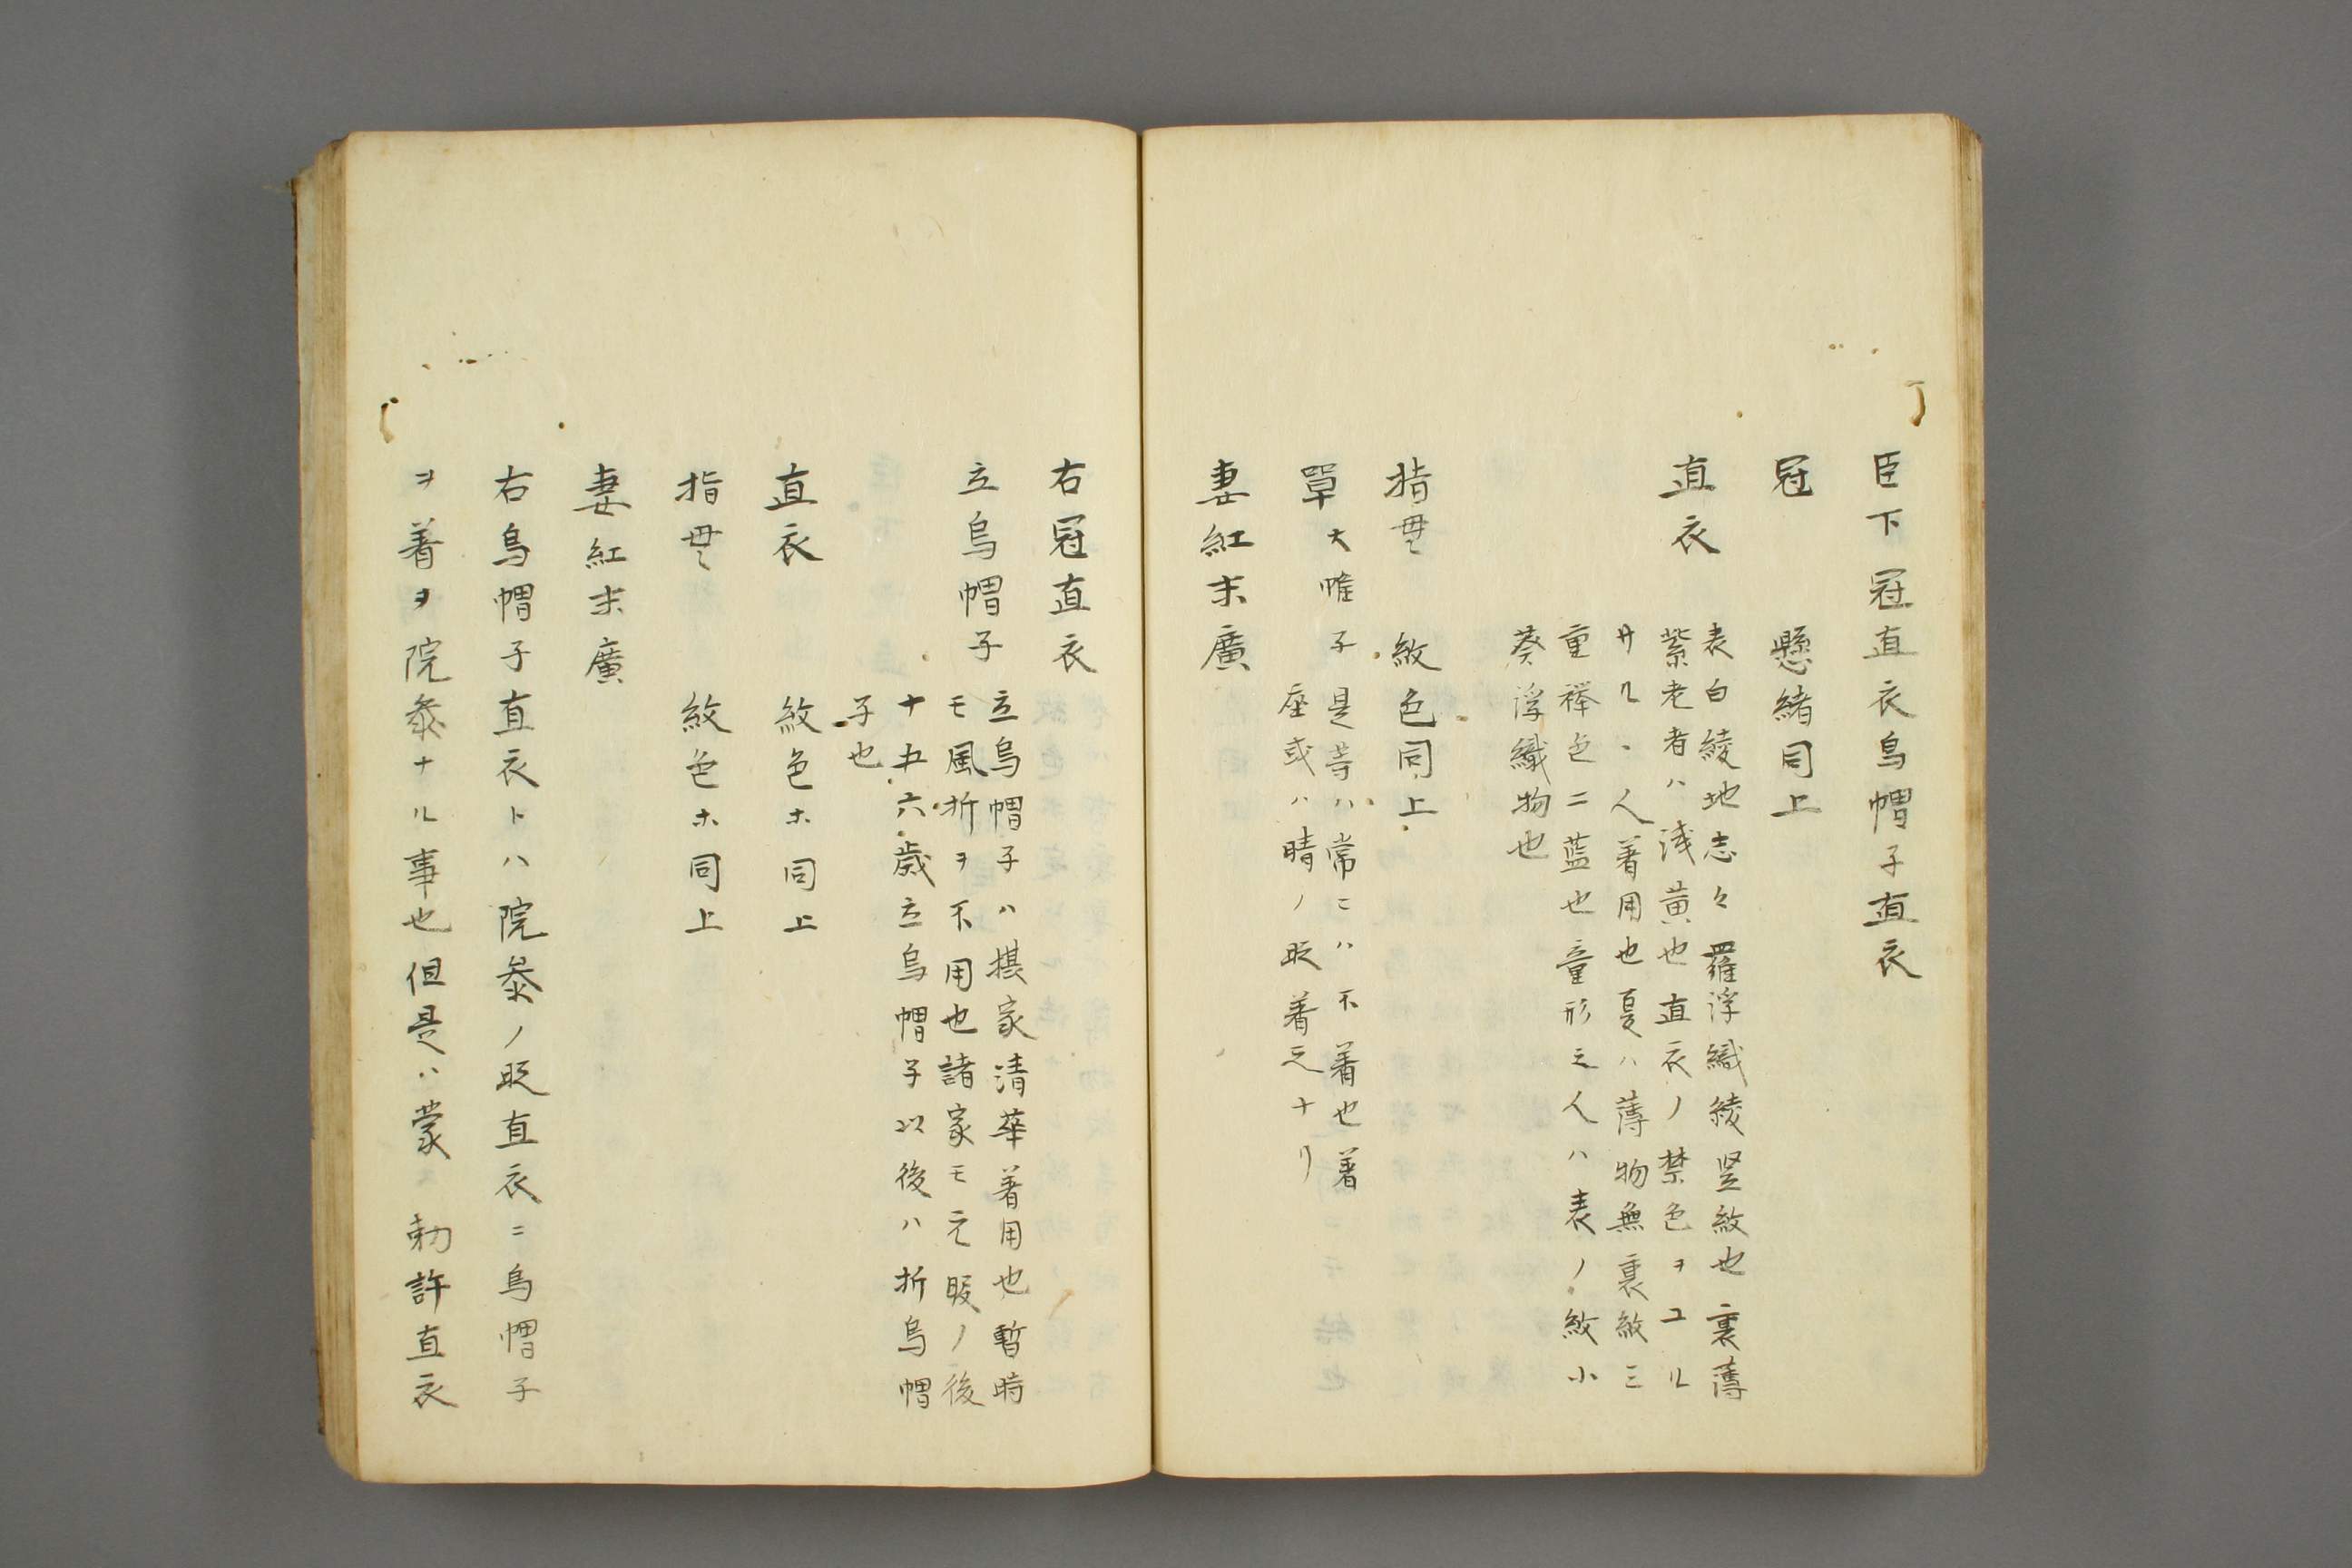 臣下冠直衣烏帽子直衣
冠　懸緒同上
直衣
表白綾地志々羅浮織綾竪紋也裏薄
紫老者ハ浅黄也直衣ノ禁色ヲユル
サル、人着用也夏ハ薄物無裏紋三
重襷色二藍也童形之人ハ表ノ紋小
葵浮織物也
指貫　紋色同上
単大帷子
是等ハ常ニハ不着也着
座或ハ晴ノ時着之ナリ
妻紅末廣
右冠直衣
立烏帽子
立烏帽子ハ摂家清華着用也暫時
モ風折ヲ不用也諸家モ元服ノ後
十五六歳立烏帽子以後ハ折烏帽
子也
直衣　紋色ホ同上
指貫　紋色ホ同上
妻紅末廣
右烏帽子直衣トハ院参ノ時直衣ニ烏帽子
ヲ着ヲ院参ナル事也但是ハ蒙　勅許直衣